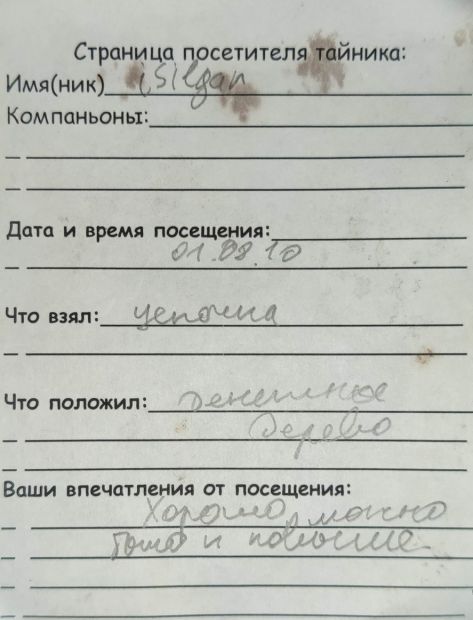 Страница посетителя тайника:
Имя(ник) iSilgan
Компаньоны:
Дата и время посещения:
01.08.10
Что взял: цепочка
Что положил: денежное
дерево
Ваши впечатления от посещения:
Хорошо, можно
и повыше